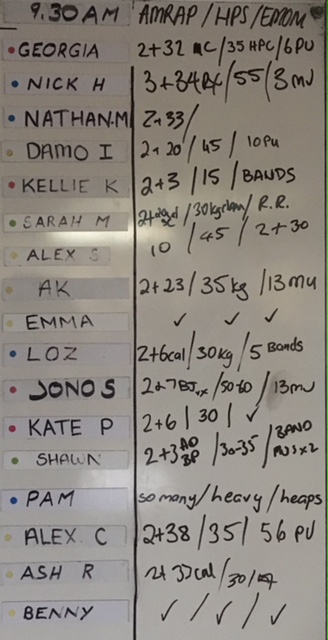 9.30 AM AMRAP/HPS/EMOM
GEORGIA 2+32 /35 HPC/6PU
NICK H 3+34Rx/55/3mu
NATHAN.M 2+33/
DAMO I 2+20/45/10PU
KELLIE K 2+3/15/BANDS
SARAH M /R.R.
ALEX S 10/45/2+30
AK 2+23/35kg/13mu
EMMA ✓ ✓ ✓
LOZ 2+6cal/30kg/5 Bands
JONO S /50-60/13mu
KATE P 2+6/30/✓
SHAWN 2+3 /30-35/BAND
PAM so many/heavy/heaps
ALEX. C 2+38/35/56 PU
ASH R /30/
BENNY ✓/✓/✓